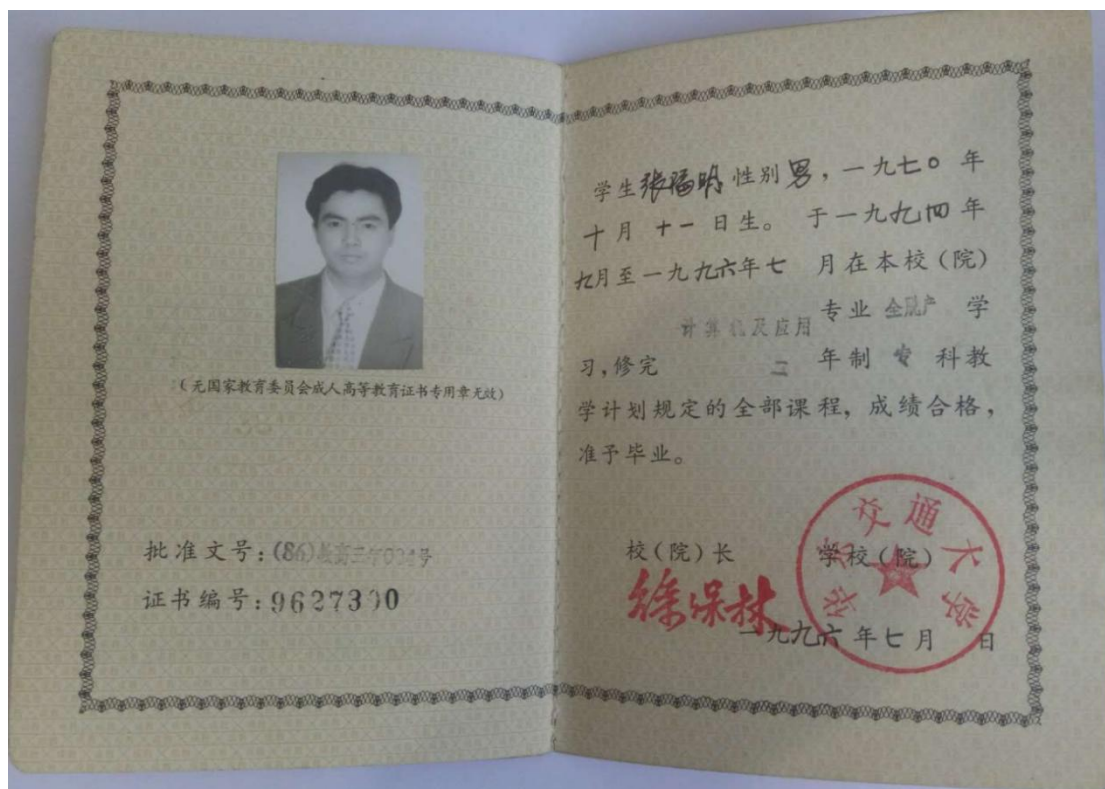 (无国家教育委员会成人高等教育证书专用章无效)
批准文号:(86)教高三字024号
证书编号:9627300
学生张福明 性别 男,一九七〇年
十月 十一 日生。于一九九四年
九月至一九九六年七 月在本校(院)
计算机及应用 专业 全脱产 学
习,修完 二 年制 专 科教
学计划规定的全部课程,成绩合格,
准予毕业。
校(院)长 学校(院)
徐保林
华东交通大学
一九九六年七月 日